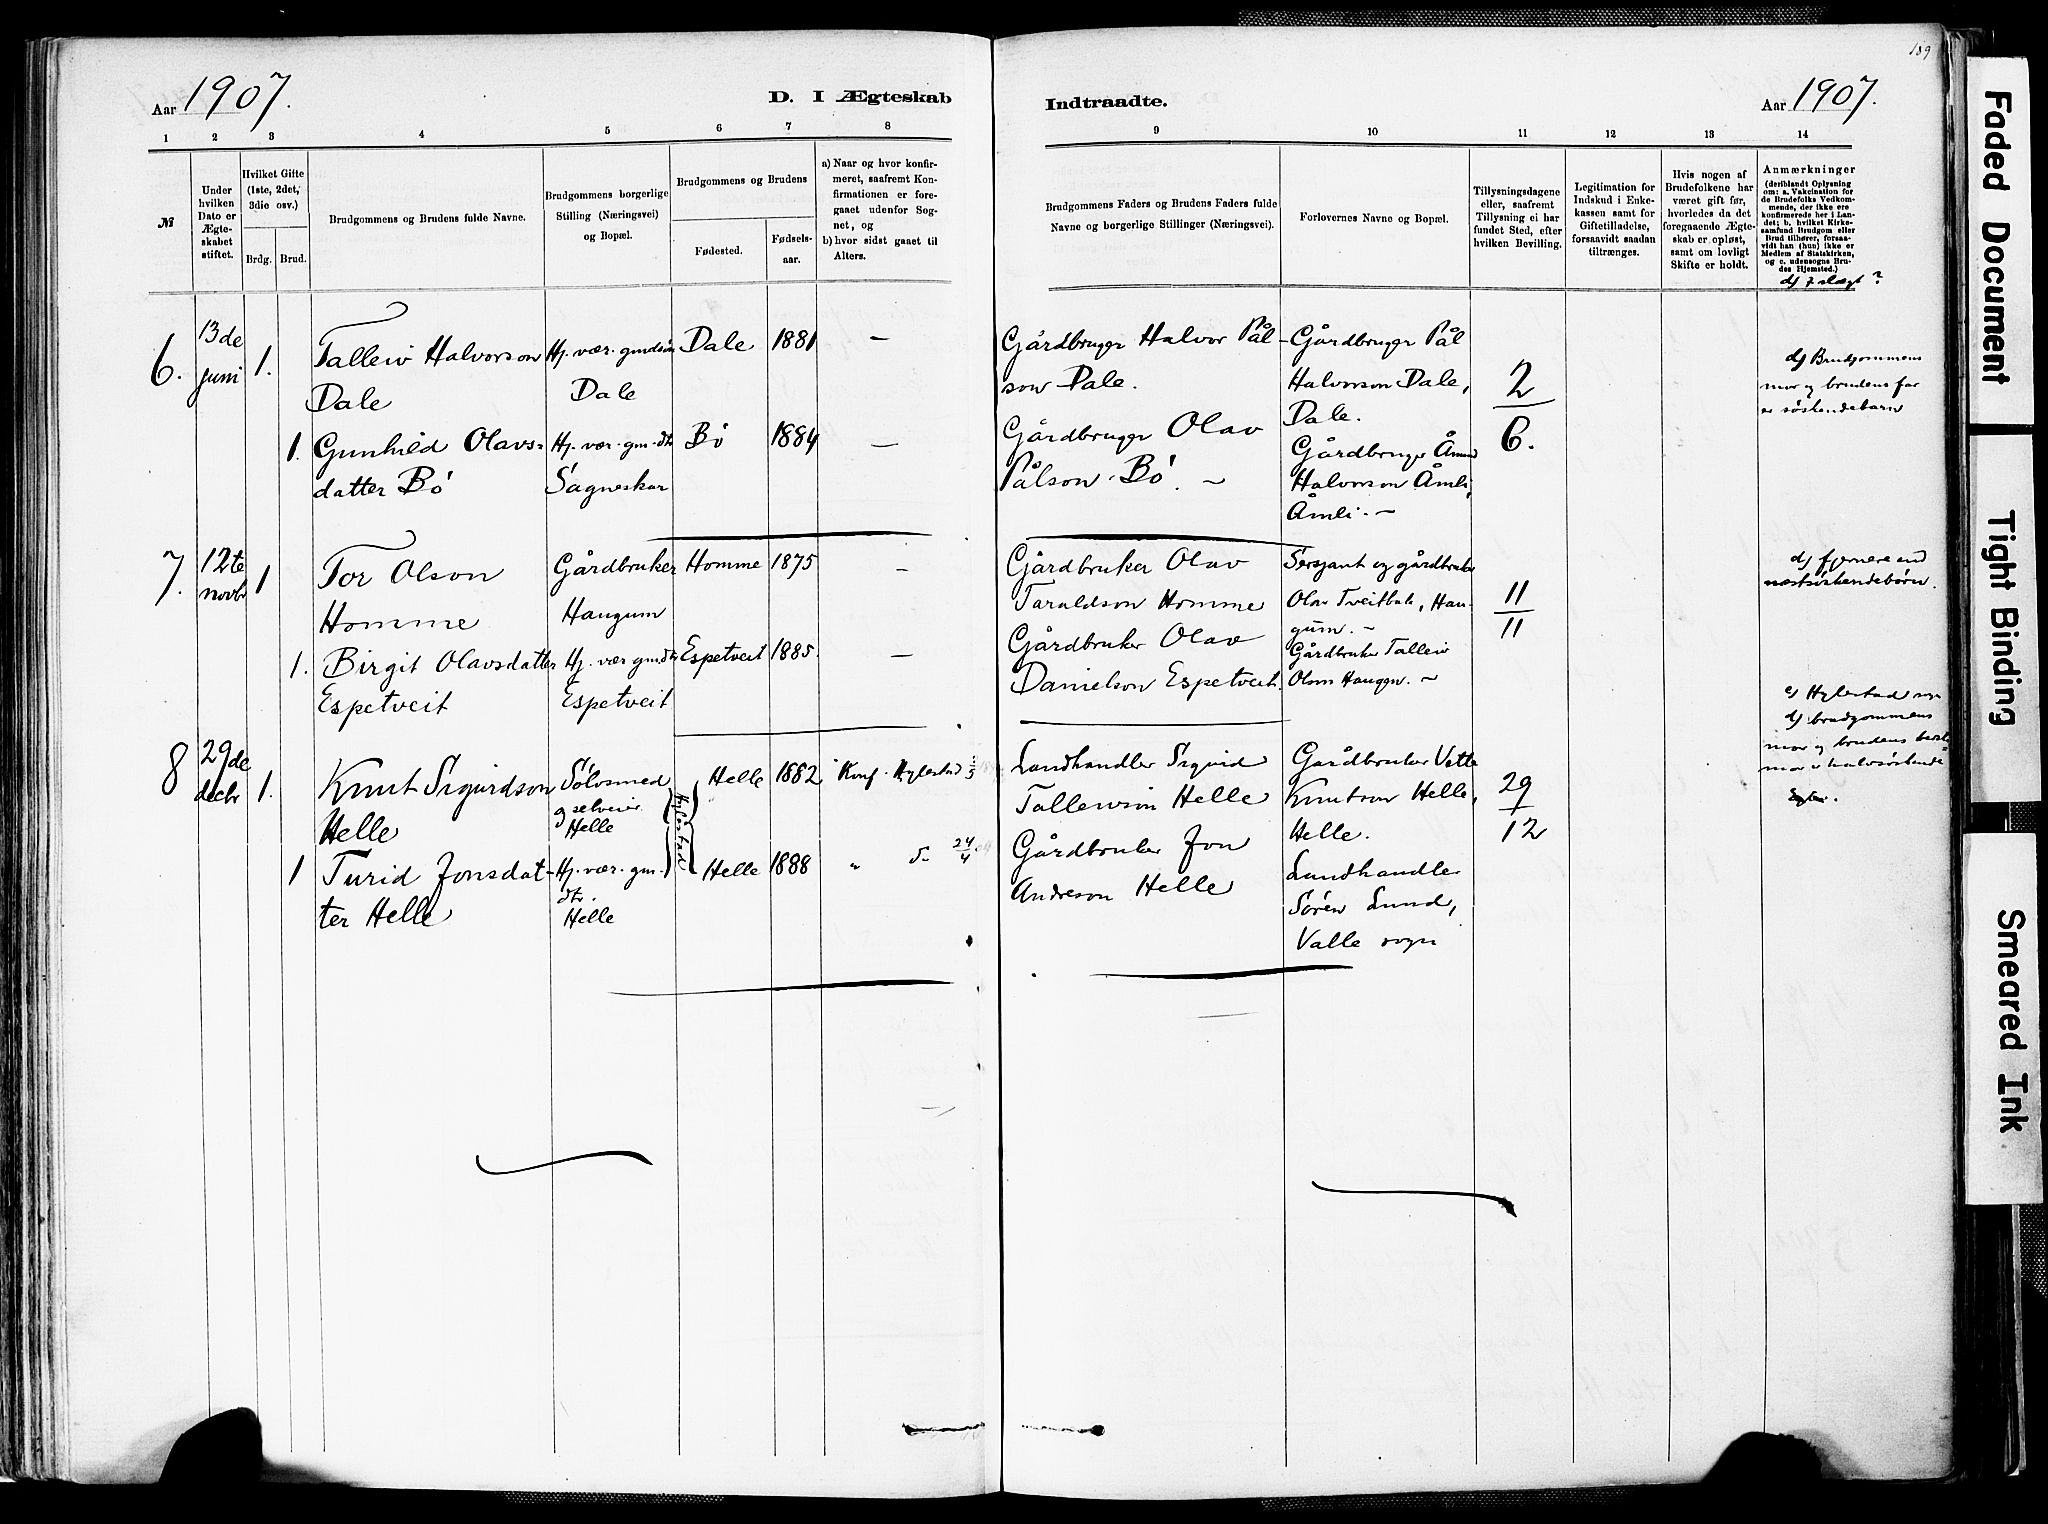 189
Aar 1907.
D. I Ægteskab
Indtraadte.
Aar 1907.
1 2 3 4 5 6 7 8 9 10 11 12 13 14
№
Under hvilken Dato er Ægteskabet stiftet.
Hvilket Gifte (1ste, 2det, 3die osv.)
Brdg. Brud.
Brudgommens og Brudens fulde Navne.
Brudgommens borgerlige Stilling (Næringsvei) og Bopæl.
Brudgommens og Brudens
Fødested.
Fødsels-aar.
a) Naar og hvor konfirmeret, saafremt Konfirmationen er foregaaet udenfor Sognet, og
b) hvor sidst gaaet til Alters.
Brudgommens Faders og Brudens Faders fulde Navne og borgerlige Stillinger (Næringsvei).
Forlovernes Navne og Bopæl.
Tillysningsdagene eller, saafremt Tillysning ei har fundet Sted, efter hvilken Bevilling.
Legitimation for Indskud i Enkekassen samt for Giftetilladelse, forsaavidt saadan tiltrænges.
Hvis nogen af Brudefolkene har været gift før, hvorledes da det foregaaende Ægteskab er opløst, samt om lovligt Skifte er holdt.
Anmærkninger
(deriblandt Oplysning om: a. Vakcination for de Brudefolks Vedkommende, der ikke ere konfirmerede her i Landet; b. hvilket Kirkesamfund Brudgom eller Brud tilhører, forsaavidt han (hun) ikke er Medlem af Statskirken, og c. udensogns Brudes Hjemsted.)
d) i slægt?
6.
13de
juni
1.
Talleiv Halvorson
Dale
Hj. vær. gmdsøn
Dale
Dale
1881
—
Gårdbruger Halvor Pål-
son Dale.
Gårdbruger Pål
Halvorson Dale,
Dale.
2/6.
d) Brudgommens
mor og brudens far
er søskendebarn
1.
Gunhild Olavs-
datter Bö
Hj. vær. gm.dtr
Sagneskar
Bö
1884
—
Gårdbruger Olav
Pålson Bö. —
Gårdbruger Åmund
Halvorson Åmli,
Åmli. —
7.
12te
novbr
1
Tor Olson
Homme
Gårdbruker
Haugum
Homme
1875
—
Gårdbruker Olav
Taraldson Homme
Sersjant og gårdbruker
Olav Tveitbak, Hau-
gum. —
11/11
d) fjernere end
næstsöskendebörn.
1.
Birgit Olavsdatter
Espetveit
Hj. vær gm.dtr
Espetveit
Espetveit
1885.
—
Gårdbruker Olav
Danielson Espetveit.
Gårdbruker Talleiv
Olson Haugen. —
8
29de
decbr
1.
Knut Sigurdson
Helle
Sölvsmed
og selveier
Helle
Hylestad
Helle
1882
Konf. Hylestad
Landhandler Sigurd
Talleivson Helle
Gardbruker Vetle
Knutson Helle,
Helle.
29/12
c) Hylestad sogn
d) brudgommens
mor og brudens beste-
mor er halvsöskende
1
Turid Jonsdat-
ter Helle
Hj. vær. gm.
dtr.
Helle
Helle
1888
" 24/4
Gårdbruker Jon
Andreson Helle
Landhandler
Sören Lund,
Valle sogn
Faded Document
Tight Binding
Smeared Ink